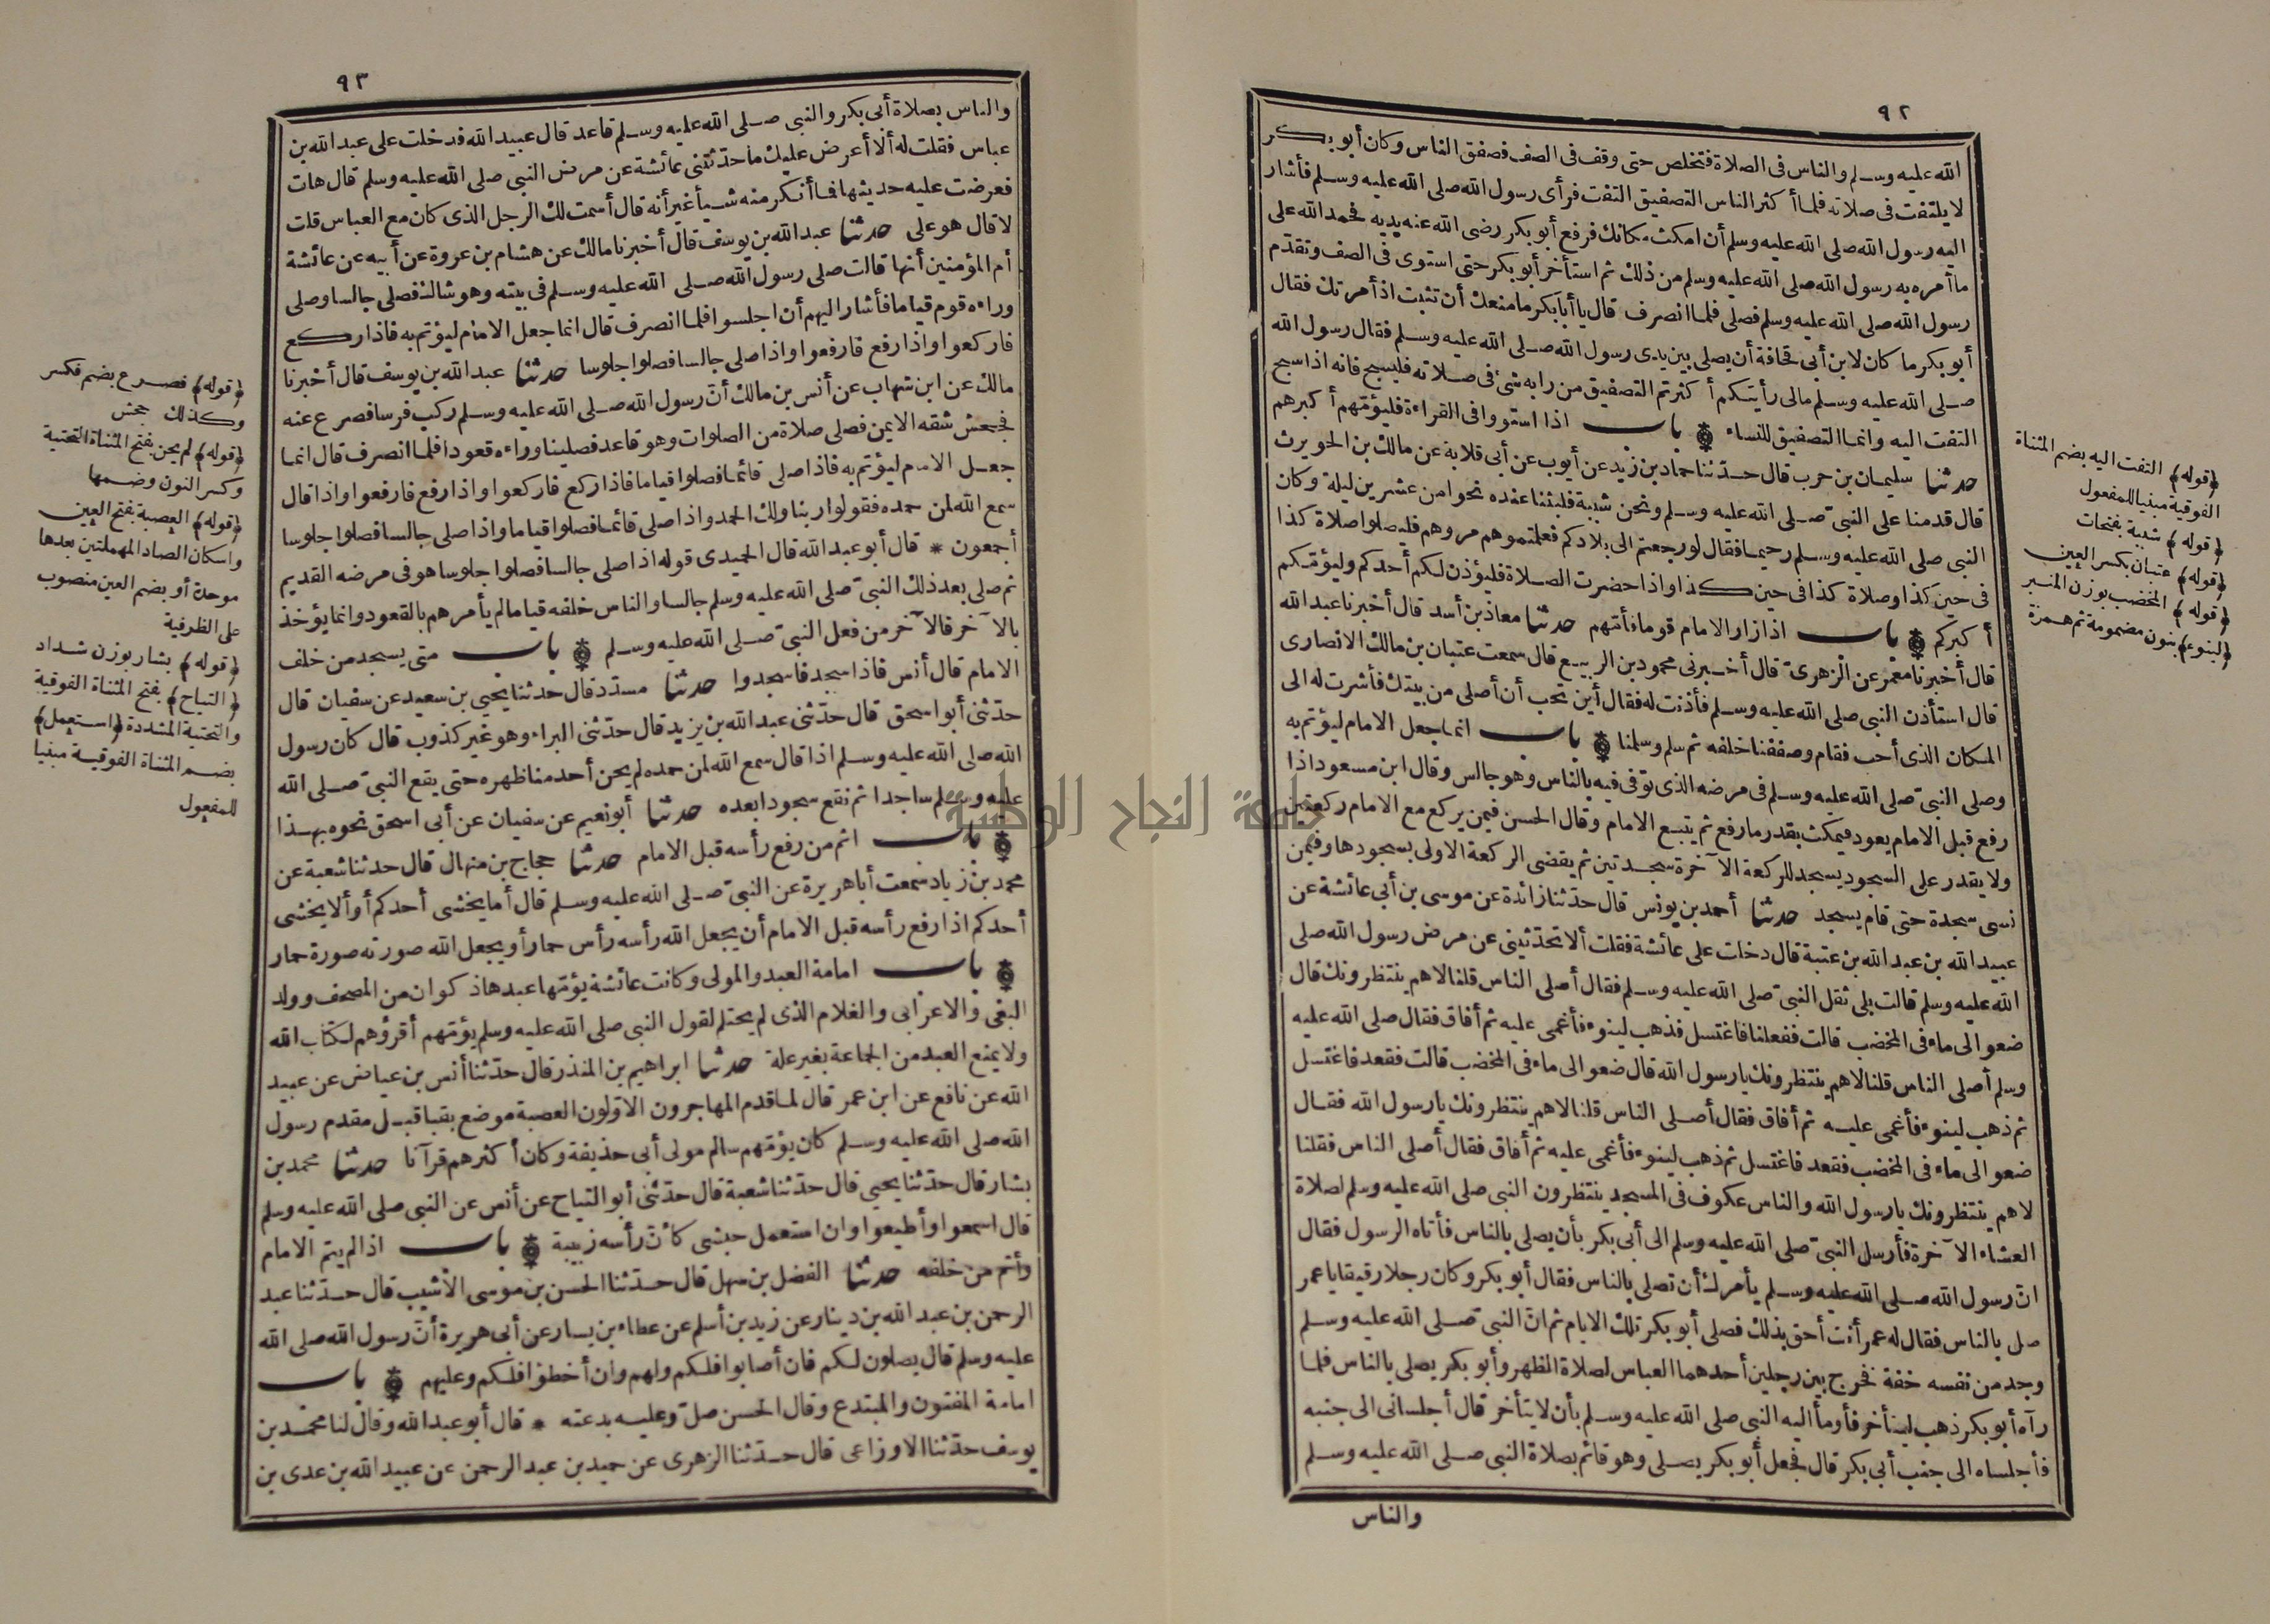 ٩٢
الله عليه وسلم والناس فى الصلاة فتخلص حتى وقف فى الصف فصفق الناس وكان أبو بكر
لا يلتفت فى صلاته فلما أكثر الناس التصفيق التفت فرأى رسول الله صلى الله عليه وسلم فأشار
اليه رسول الله صلى الله عليه وسلم أن امكث مكانك فرفع أبو بكر رضى الله عنه يديه فحمد الله على
ما أمره به رسول الله صلى الله عليه وسلم من ذلك ثم استأخر أبو بكر حتى استوى فى الصف وتقدم
رسول الله صلى الله عليه وسلم فصلى فلما انصرف قال يا أبا بكر ما منعك أن تثبت اذ أمرتك فقال
أبو بكر ما كان لابن أبى قحافة أن يصلى بين يدى رسول الله صلى الله عليه وسلم فقال رسول الله
صلى الله عليه وسلم مالى رأيتكم أكثرتم التصفيق من رابه شئ فى صلاته فليسبح فانه اذا سبح
التفت اليه وانما التصفيق للنساء باب اذا استووا فى القراءة فليؤمهم أكبرهم
حدثنا سليمان بن حرب قال حدثنا حماد بن زيد عن أيوب عن أبى قلابة عن مالك بن الحويرث
قال قدمنا على النبى صلى الله عليه وسلم ونحن شببة فلبثنا عنده نحوا من عشرين ليلة وكان
النبى صلى الله عليه وسلم رحيما فقال لو رجعتم الى بلادكم فعلمتموهم مروهم فليصلوا صلاة كذا
فى حين كذا وصلاة كذا فى حين كذا واذا حضرت الصلاة فليؤذن لكم أحدكم وليؤمكم
أكبركم باب اذا زار الامام قوما فأمهم حدثنا معاذ بن أسد قال أخبرنا عبد الله
قال أخبرنا معمر عن الزهرى قال أخبرنى محمود بن الربيع قال سمعت عتبان بن مالك الانصارى
قال استأذن النبى صلى الله عليه وسلم فأذنت له فقال أين تحب أن أصلى من بيتك فأشرت له الى
المكان الذى أحب فقام وصففنا خلفه ثم سلم وسلمنا باب انما جعل الامام ليؤتم به
وصلى النبى صلى الله عليه وسلم فى مرضه الذى توفى فيه بالناس وهو جالس وقال ابن مسعود اذا
رفع قبل الامام يعود فيمكث بقدر ما رفع ثم يتبع الامام وقال الحسن فيمن يركع مع الامام ركعتين
ولا يقدر على السجود يسجد للركعة الآخرة سجدتين ثم يقضى الركعة الاولى بسجودها وفيمن
نسى سجدة حتى قام يسجد حدثنا أحمد بن يونس قال حدثنا زائدة عن موسى بن أبى عائشة عن
عبيد الله بن عبد الله بن عتبة قال دخلت على عائشة فقلت ألا تحدثينى عن مرض رسول الله صلى
الله عليه وسلم قالت بلى ثقل النبى صلى الله عليه وسلم فقال أصلى الناس قلنا لا هم ينتظرونك قال
ضعوا لى ماء فى المخضب قالت ففعلنا فاغتسل فذهب لينوء فأغمى عليه ثم أفاق فقال صلى الله عليه
وسلم أصلى الناس قلنا لا هم ينتظرونك يا رسول الله قال ضعوا لى ماء فى المخضب قالت فقعد فاغتسل
ثم ذهب لينوء فأغمى عليه ثم أفاق فقال أصلى الناس قلنا لا هم ينتظرونك يا رسول الله فقال
ضعوا لى ماء فى المخضب فقعد فاغتسل ثم ذهب لينوء فأغمى عليه ثم أفاق فقال أصلى الناس فقلنا
لا هم ينتظرونك يا رسول الله والناس عكوف فى المسجد ينتظرون النبى صلى الله عليه وسلم لصلاة
العشاء الآخرة فأرسل النبى صلى الله عليه وسلم الى أبى بكر بأن يصلى بالناس فأتاه الرسول فقال
ان رسول الله صلى الله عليه وسلم يأمرك أن تصلى بالناس فقال أبو بكر وكان رجلا رقيقا يا عمر
صل بالناس فقال له عمر أنت أحق بذلك فصلى أبو بكر تلك الايام ثم ان النبى صلى الله عليه وسلم
وجد من نفسه خفة فخرج بين رجلين أحدهما العباس لصلاة الظهر وأبو بكر يصلى بالناس فلما
رآه أبو بكر ذهب ليتأخر فأومأ اليه النبى صلى الله عليه وسلم بأن لا يتأخر قال أجلسانى الى جنبه
فأجلساه الى جنب أبى بكر قال فجعل أبو بكر يصلى وهو قائم بصلاة النبى صلى الله عليه وسلم
والناس
(قوله) التفت اليه بضم المثناة
الفوقية مبنيا للمفعول
(قوله) شببة بفتحات
(قوله) عتبان بكسر العين
(قوله) المخضب بوزن المنبر
(لينوء) بنون مضمومة ثم همزة
٩٣
والناس بصلاة أبى بكر والنبى صلى الله عليه وسلم قاعد قال عبيد الله فدخلت على عبد الله بن
عباس فقلت له ألا أعرض عليك ما حدثتنى عائشة عن مرض النبى صلى الله عليه وسلم قال هات
فعرضت عليه حديثها فما أنكر منه شيأ غير أنه قال أسمت لك الرجل الذى كان مع العباس قلت
لا قال هو على حدثنا عبد الله بن يوسف قال أخبرنا مالك عن هشام بن عروة عن أبيه عن عائشة
أم المؤمنين أنها قالت صلى رسول الله صلى الله عليه وسلم فى بيته وهو شاك فصلى جالسا وصلى
وراءه قوم قياما فأشار اليهم أن اجلسوا فلما انصرف قال انما جعل الامام ليؤتم به فاذا ركع
فاركعوا واذا رفع فارفعوا واذا صلى جالسا فصلوا جلوسا حدثنا عبد الله بن يوسف قال أخبرنا
مالك عن ابن شهاب عن أنس بن مالك أن رسول الله صلى الله عليه وسلم ركب فرسا فصرع عنه
فجحش شقه الايمن فصلى صلاة من الصلوات وهو قاعد فصلينا وراءه قعودا فلما انصرف قال انما
جعل الامام ليؤتم به فاذا صلى قائما فصلوا قياما فاذا ركع فاركعوا واذا رفع فارفعوا واذا قال
سمع الله لمن حمده فقولوا ربنا ولك الحمد واذا صلى قائما فصلوا قياما واذا صلى جالسا فصلوا جلوسا
أجمعون * قال أبو عبد الله قال الحميدى قوله اذا صلى جالسا فصلوا جلوسا هو فى مرضه القديم
ثم صلى بعد ذلك النبى صلى الله عليه وسلم جالسا والناس خلفه قياما لم يأمرهم بالقعود وانما يؤخذ
بالآخر فالآخر من فعل النبى صلى الله عليه وسلم باب متى يسجد من خلف
الامام قال أنس فاذا سجد فاسجدوا حدثنا مسدد قال حدثنا يحيى بن سعيد عن سفيان قال
حدثنى أبو اسحق قال حدثنى عبد الله بن يزيد قال حدثنى البراء وهو غير كذوب قال كان رسول
الله صلى الله عليه وسلم اذا قال سمع الله لمن حمده لم يحن أحد منا ظهره حتى يقع النبى صلى الله
عليه وسلم ساجدا ثم نقع سجودا بعده حدثنا أبو نعيم عن سفيان عن أبى اسحق نحوه بهذا
باب اثم من رفع رأسه قبل الامام حدثنا حجاج بن منهال قال حدثنا شعبة عن
محمد بن زياد سمعت أبا هريرة عن النبى صلى الله عليه وسلم قال أما يخشى أحدكم أو ألا يخشى
أحدكم اذا رفع رأسه قبل الامام أن يجعل الله رأسه رأس حمار أو يجعل الله صورته صورة حمار
باب امامة العبد والمولى وكانت عائشة يؤمها عبدها ذكوان من المصحف وولد
البغى والاعرابى والغلام الذى لم يحتلم لقول النبى صلى الله عليه وسلم يؤمهم أقرؤهم لكتاب الله
ولا يمنع العبد من الجماعة بغير علة حدثنا ابراهيم بن المنذر قال حدثنا أنس بن عياض عن عبيد
الله عن نافع عن ابن عمر قال لما قدم المهاجرون الاولون العصبة موضع بقبا قبل مقدم رسول
الله صلى الله عليه وسلم كان يؤمهم سالم مولى أبى حذيفة وكان أكثرهم قرآنا حدثنا محمد بن
بشار قال حدثنا يحيى قال حدثنا شعبة قال حدثنى أبو التياح عن أنس عن النبى صلى الله عليه وسلم
قال اسمعوا وأطيعوا وان استعمل حبشى كأن رأسه زبيبة باب اذا لم يتم الامام
وأتم من خلفه حدثنا الفضل بن سهل قال حدثنا الحسن بن موسى الاشيب قال حدثنا عبد
الرحمن بن عبد الله بن دينار عن زيد بن أسلم عن عطاء بن يسار عن أبى هريرة أن رسول الله صلى الله
عليه وسلم قال يصلون لكم فان أصابوا فلكم ولهم وان أخطؤا فلكم وعليهم باب
امامة المفتون والمبتدع وقال الحسن صل وعليه بدعته * قال أبو عبد الله وقال لنا محمد بن
يوسف حدثنا الاوزاعى قال حدثنا الزهرى عن حميد بن عبد الرحمن عن عبيد الله بن عدى بن
(قوله) فصرع بضم فكسر
وكذلك جحش
(قوله) لم يحن بفتح المثناة التحتية
وكسر النون وضمها
(قوله) العصبة بفتح العين
واسكان الصاد المهملتين بعدها
موحدة أو بضم العين منصوب
على الظرفية
(قوله) بشار بوزن شداد
(التياح) بفتح المثناة الفوقية
والتحتية المشددة (استعمل)
بضم المثناة الفوقية مبنيا
للمفعول
جامعة النجاح الوطنية